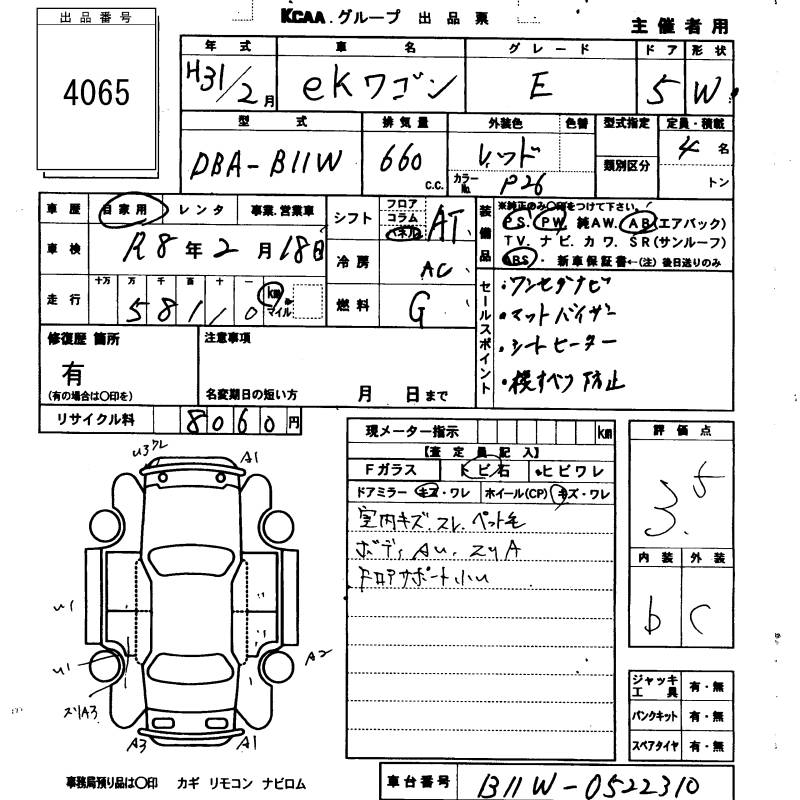 KCAA.グループ 出品票
主催者用
出品番号
4065
年式 車名 グレード ドア 形状
H31/2月 eKワゴン E 5 W
型式 排気量 外装色 色替 型式指定 定員・積載
DBA-B11W 660 c.c. レッド 類別区分 4名
カラーNo. P26 トン
車歴 自家用 レンタ 事業.営業車
車検 R8年2月18日
走行 十万 万 千 百 十 一 58110 km マイル
シフト フロア コラム パネル AT
冷房 AC
燃料 G
装備品 ※純正のみ○印をつけて下さい。
PS. PW. 純AW. AB(エアバック)
TV. ナビ. カワ. SR(サンルーフ)
ABS. 新車保証書←(注)後日送りのみ
セールスポイント
・ワンセグナビ
・マットバイザー
・シートヒーター
・横すべり防止
修復歴 箇所
有
(有の場合は○印を)
注意事項
名変期日の短い方 月 日まで
リサイクル料 8060円
現メーター指示 km
【査定員記入】
Fガラス トビ石 ヒビワレ
ドアミラー キズ・ワレ ホイール(CP) キズ・ワレ
室内キズ.スレ.ペット毛
ボディAU.スリA
FロアサポートU
評価点
3.5
内装 外装
b C
U3ワレ A1
U1
U1
A2
スリA3
A3 A1
ジャッキ工具 有・無
パンクキット 有・無
スペアタイヤ 有・無
事務局預り品は○印 カギ リモコン ナビロム
車台番号 B11W-0522310